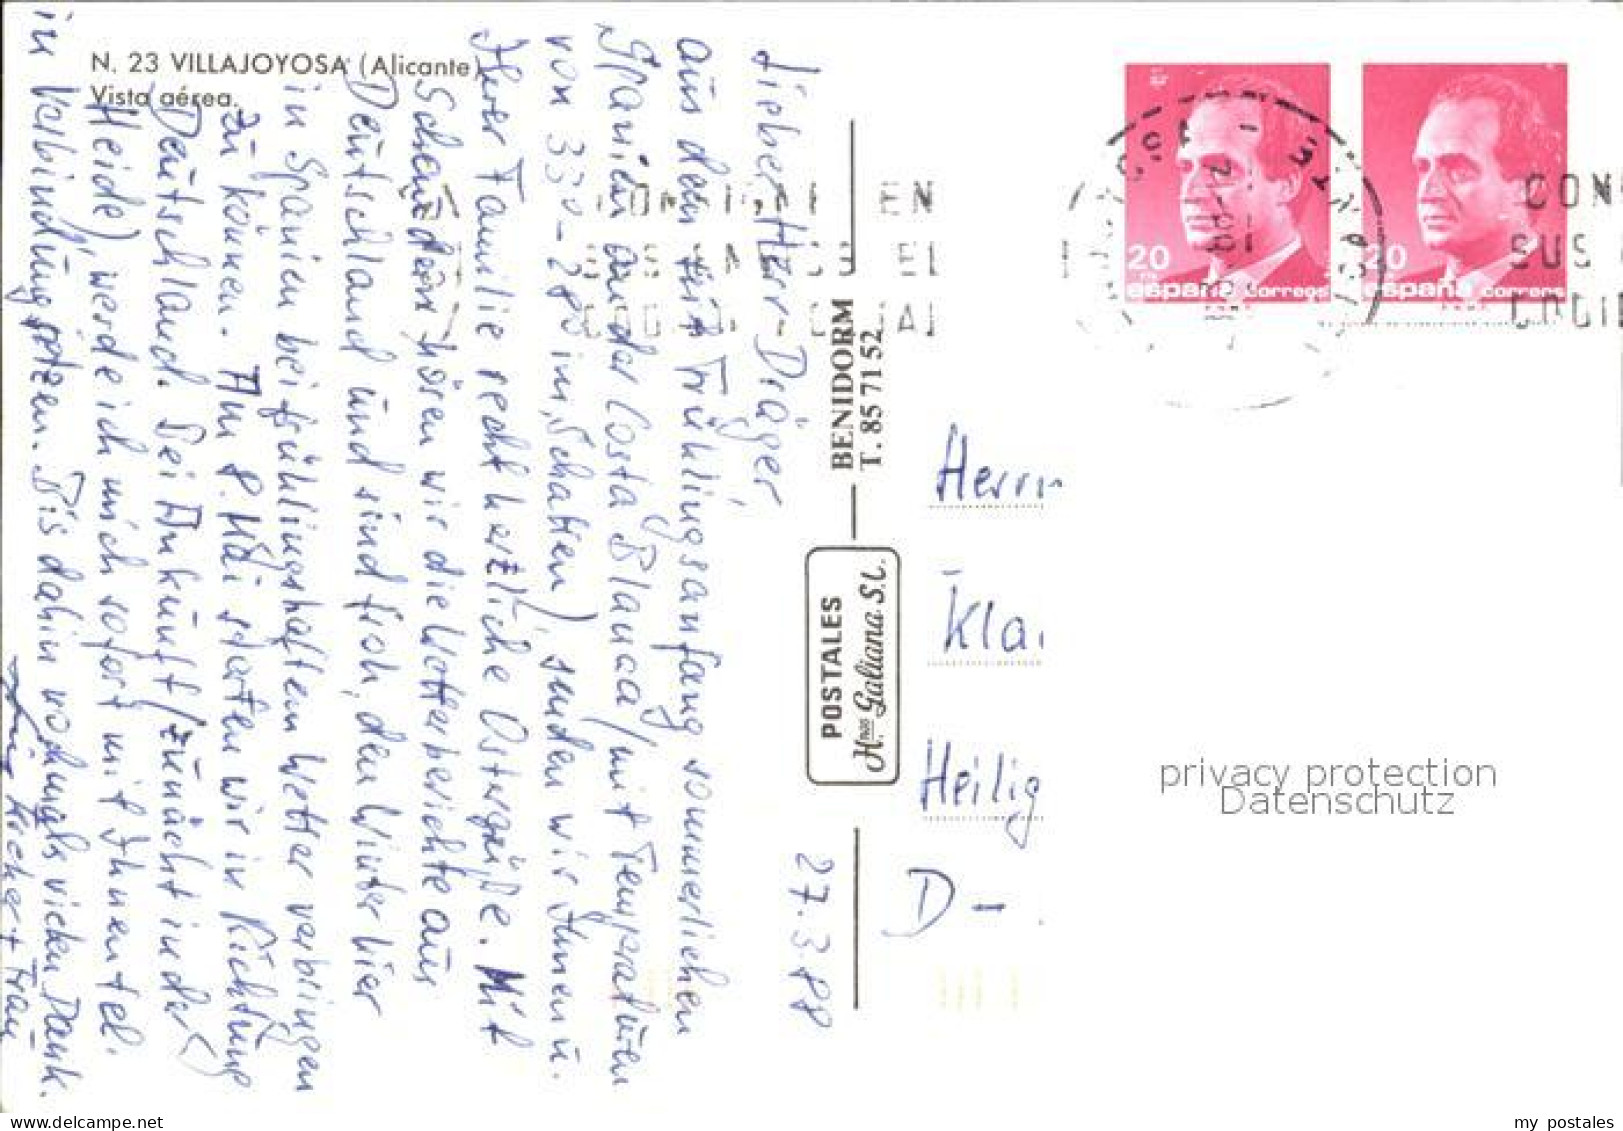 N. 23 VILLAJOYOSA (Alicante)
Vista aérea.
27.3.88
Lieber Herr Dräger,
aus dem  Frühlingsanfang sommerlichen
Spanien an der Costa Blanca (mit Temperaturen
von 33°-28° im Schatten), senden wir Ihnen u.
Ihrer Familie recht herzliche Ostergrüße. Mit
Schaudern hören wir die Wetterberichte aus
Deutschland und sind froh, den Winter hier
in Spanien bei frühlingshaftem Wetter verbringen
zu können. Am 8. Mai starten wir in Richtung
Deutschland. Bei Ankunft (zunächst in der
Heide), werde ich mich sofort mit Ihnen tel.
in Verbindung setzen. Bis dahin nochmals vielen Dank.
Ihr
+ Frau
BENIDORM
T. 85 71 52
POSTALES
Hnos Galiana S.L.
20
españa correos
20
españa correos
EN
EL
CON
SUS
Herrn
Kla
Heilig
D -
privacy protection
Datenschutz
www.delcampe.net
my postales